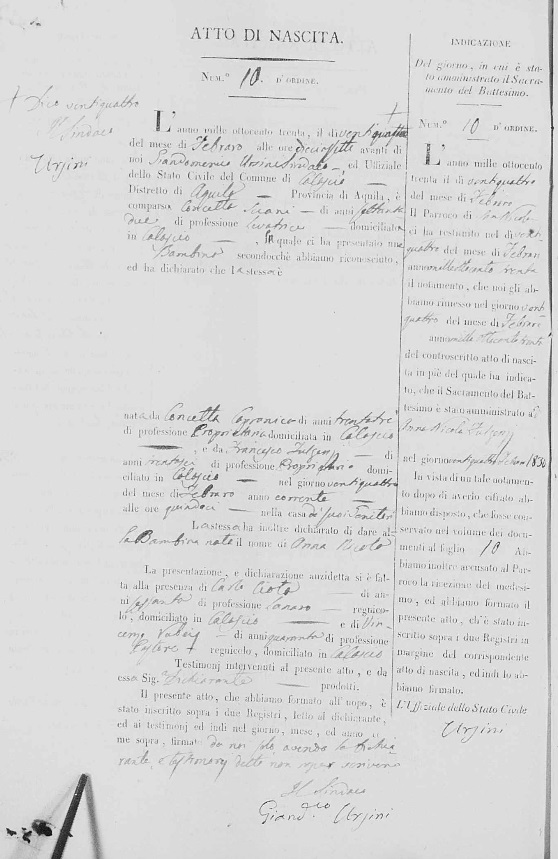 ATTO DI NASCITA.
Num.º 10. D'ORDINE.
+ Dico ventiquattro
Il Sindaco
Ursini
L'anno mille ottocento trenta, il dì ventiquattro
del mese di Febraro alle ore dieciasette avanti di
noi Giandomenico Ursini Sindaco ed Uffiziale
dello Stato Civile del Comune di Calascio
Distretto di Aquila Provincia di Aquila, è
comparsa Concetta di anni settanta
due di professione levatrice domiciliata
in Calascio, la quale ci ha presentato una
Bambina secondocchè abbiamo riconosciuto,
ed ha dichiarato che la stessa è
nata da Concetta di anni trentatré
di professione Proprietaria domiciliata in Calascio
, e da Francesco di
anni di professione Proprietario domi-
ciliato in Calascio nel giorno ventiquattro
del mese di Febraro anno corrente
alle ore quindici nella casa di suoi Genitori
La stessa ha inoltre dichiarato di dare al-
la Bambina nata il nome di Anna Nicola
La presentazione, e dichiarazione anzidetta si è fat-
ta alla presenza di Carlo di an-
ni sessanta di professione regnico-
lo, domiciliato in Calascio e di Vin-
cenzo di anni quaranta di professione
regnicolo, domiciliato in Calascio
Testimonj intervenuti al presente atto, e da
esso Sig. Dichiarante prodotti.
Il presente atto, che abbiamo formato all'uopo, è
stato inscritto sopra i due Registri, letto al dichiarante,
ed ai testimonj ed indi nel giorno, mese, ed anno co-
me sopra, firmato da noi solo avendo la dichia
rante, e testimonj detto non saper scrivere
Il Sindaco
Giand.co Ursini
INDICAZIONE
Del giorno, in cui è sta-
to amministrato il Sacra-
mento del Battesimo.
Num.º 10 D'ORDINE.
L'anno mille ottocento
trenta il dì ventiquattro
del mese di Febraro
Il Parroco di San Nicola
ci ha restituito nel dì venti
quattro del mese di Febraro
anno mille ottocento trenta
il notamento, che noi gli ab-
biamo rimesso nel giorno venti
quattro del mese di Febraro
anno mille ottocento trenta
del controscritto atto di nasci-
ta in piè del quale ha indica-
to, che il Sacramento del Bat-
tesimo è stato amministrato a
Anna Nicola
nel giorno ventiquattro Febraro 1830
In vista di un tale notamen-
to dopo di averlo cifrato ab-
biamo disposto, che fosse con-
servato nel volume dei docu-
menti al foglio 10 Ab-
biamo inoltre accusato al Par-
roco la ricezione del medesi-
mo, ed abbiamo formato il
presente atto, ch'è stato in-
scritto sopra i due Registri in
margine del corrispondente
atto di nascita, ed indi lo ab-
biamo firmato.
L'Uffiziale dello Stato Civile
Ursini